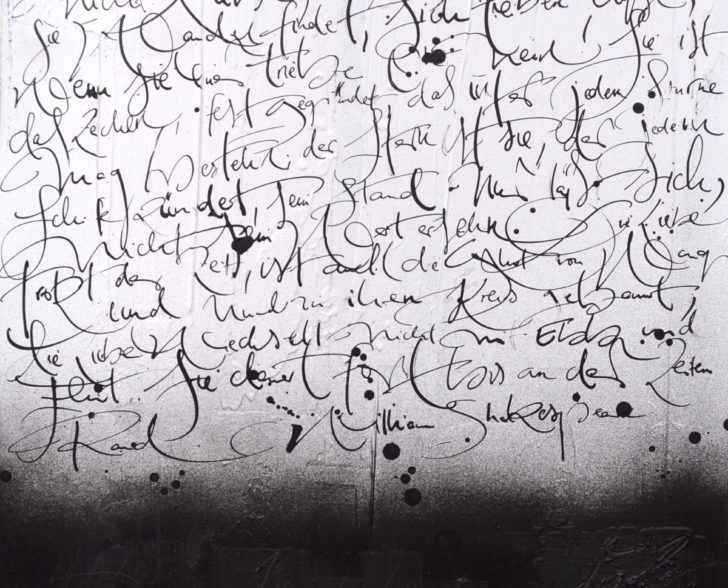 Wandel findet, sich
wenn sie Nein! Sie ist
das Zeichen, fest gegründet, das unter jedem Sturme
mag bestehn; der Stern ist sie, der jedem
Schiff zündet, sein Stand. Nun läßt sich,
nicht sein Wert ersehn. Die Liebe
trotzt der Zeit, ist auch die Glut von Wang
und Mund in ihren Kreis gebannt,
Die Liebe wechselt nicht in Ebb und
Flut. Sie dauert fort bis an der Zeiten
Rand William Shakespeare